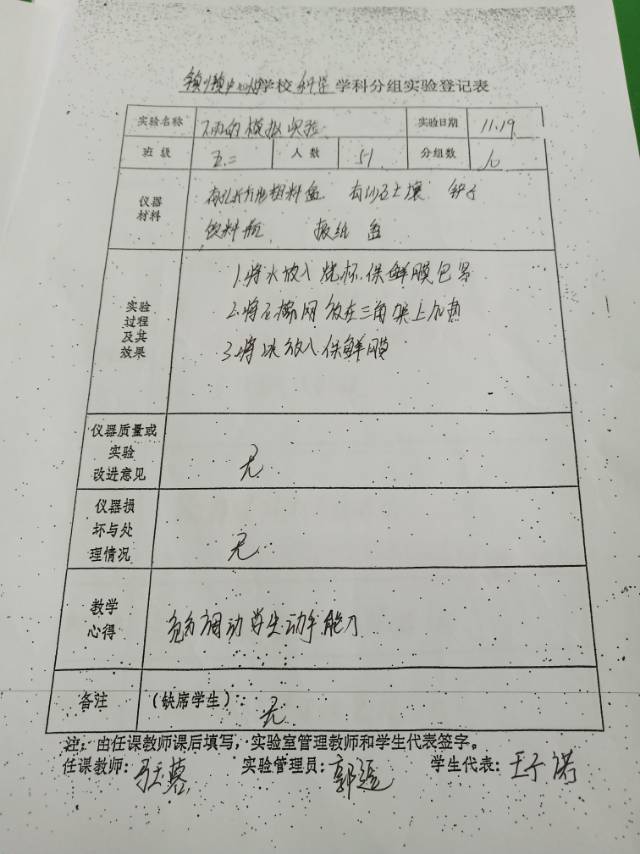 学校 科学 学科分组实验登记表
实验名称 下雨的模拟实验 实验日期 11.19
班级 五.二 人数 51 分组数
仪器材料 有孔长方形塑料盒 有沙石土壤 铲子
饮料瓶 报纸 盒
实验过程及其效果 1.将水放入烧杯.保鲜膜包另
2.将石棉网放在三角架上加热
3.将冰放入保鲜膜
仪器质量或实验改进意见 无
仪器损坏与处理情况 无
教学心得 充分调动学生动手能力
备注 (缺席学生): 无
注:由任课教师课后填写,实验室管理教师和学生代表签字。
任课教师: 实验管理员: 郭 学生代表: 王子诺